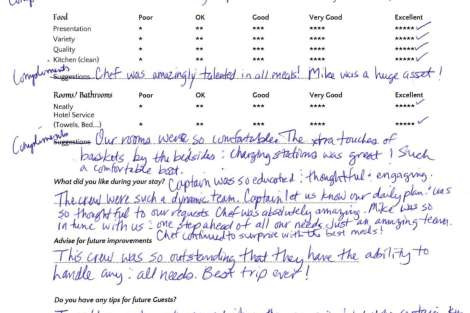 Food Poor OK Good Very Good Excellent
Presentation * ** *** **** *****
Variety * ** *** **** *****
Quality * ** *** **** *****
Kitchen (clean) * ** *** **** *****
Compliments Suggestions Chef was amazingly talented in all meals! Mike was a huge asset!
Rooms/Bathrooms Poor OK Good Very Good Excellent
Neatly * ** *** **** *****
Hotel Service
(Towels, Bed...) * ** *** **** *****
Compliments Suggestions Our rooms were so comfortable. The xtra touches of
baskets by the bedsides & charging stations was great! Such
a comfortable boat.
What did you like during your stay? Captain was so educated & thoughtful & engaging.
The crew were such a dynamic team. Captain let us know our daily plan & was
so thoughtful to our requests Chef was absolutely amazing. Mike was so
in tune with us & one step ahead of all our needs. Just an amazing team.
Chef continued to surprise with the best meals!
Advise for future improvements
This crew was so outstanding that they have the ability to
handle any & all needs. Best trip ever!
Do you have any tips for future Guests?